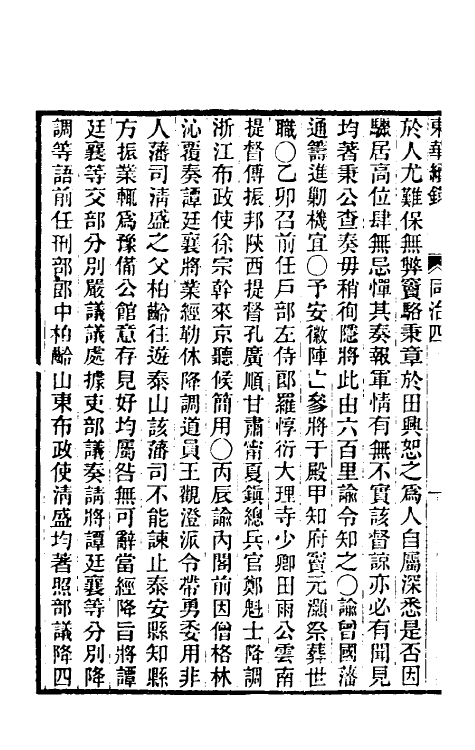 東華續錄 同治四
於人尤難保無弊竇駱秉章於田興恕之爲人自屬深悉是否因
驟居高位肆無忌憚其奏報軍情有無不實該督諒亦必有聞見
均著秉公查奏毋稍徇隱將此由六百里諭令知之〇諭曾國藩
通籌進勦機宜〇予安徽陣亡參將于殿甲知府竇元灝祭葬世
職〇乙卯召前任戶部左侍郎羅惇衍大理寺少卿田雨公雲南
提督傅振邦陝西提督孔廣順甘肅甯夏鎮總兵官鄭魁士降調
浙江布政使徐宗幹來京聽候簡用〇丙辰諭內閣前因僧格林
沁覆奏譚廷襄將業經勒休降調道員王觀澄派令帶勇委用非
人藩司清盛之父柏齡往遊泰山該藩司不能諫止泰安縣知縣
方振業輒爲豫備公館意存見好均屬咎無可辭當經降旨將譚
廷襄等交部分別嚴議議處據吏部議奏請將譚廷襄等分別降
調等語前任刑部郎中柏齡山東布政使淸盛均著照部議降四